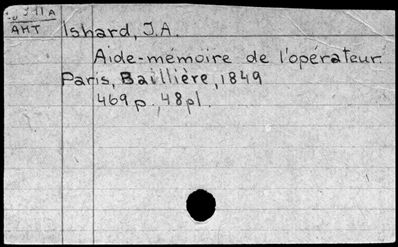 AMT
Ishard, J.A.
Aide-mémoire de l'opérateur.
Paris, Baillière, 1849
469 p., 48 pl.